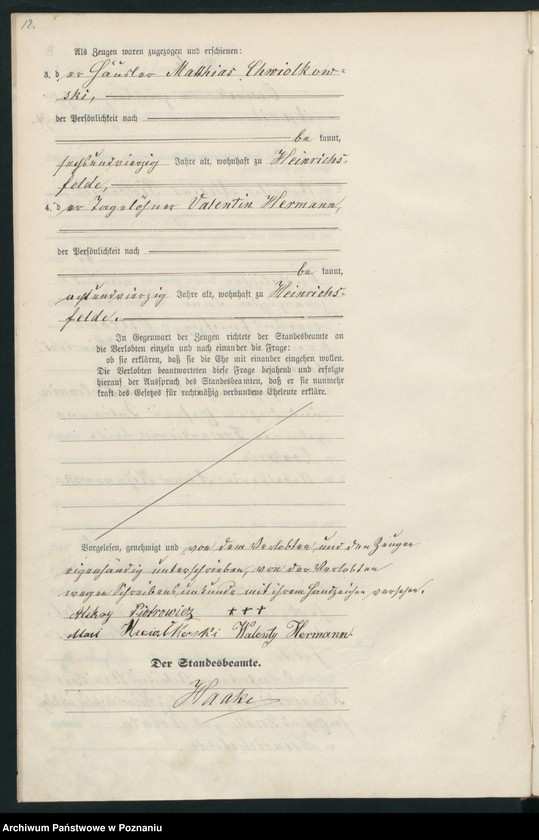 12.
Als Zeugen waren zugezogen und erschienen:
3. der Häusler Matthias Chwiolkow-
ski,
der Persönlichkeit nach
be kannt,
sechsundvierzig Jahre alt, wohnhaft zu Heinrichs-
felde,
4. der Tagelöhner Valentin Hermann,
der Persönlichkeit nach
be kannt,
achtundvierzig Jahre alt, wohnhaft zu Heinrichs-
felde.
In Gegenwart der Zeugen richtete der Standesbeamte an
die Verlobten einzeln und nach einander die Frage:
ob sie erklären, daß sie die Ehe mit einander eingehen wollen.
Die Verlobten beantworteten diese Frage bejahend und erfolgte
hierauf der Ausspruch des Standesbeamten, daß er sie nunmehr
kraft des Gesetzes für rechtmäßig verbundene Eheleute erkläre.
Vorgelesen, genehmigt und von dem Verlobten und den Zeugen
eigenhändig unterschrieben, von der Verlobten
wegen Schreibensunkunde mit ihrem Handzeichen versehen.
Piotrowicz +++
Walenty Hermann
Der Standesbeamte.
Haake
Archiwum Państwowe w Poznaniu